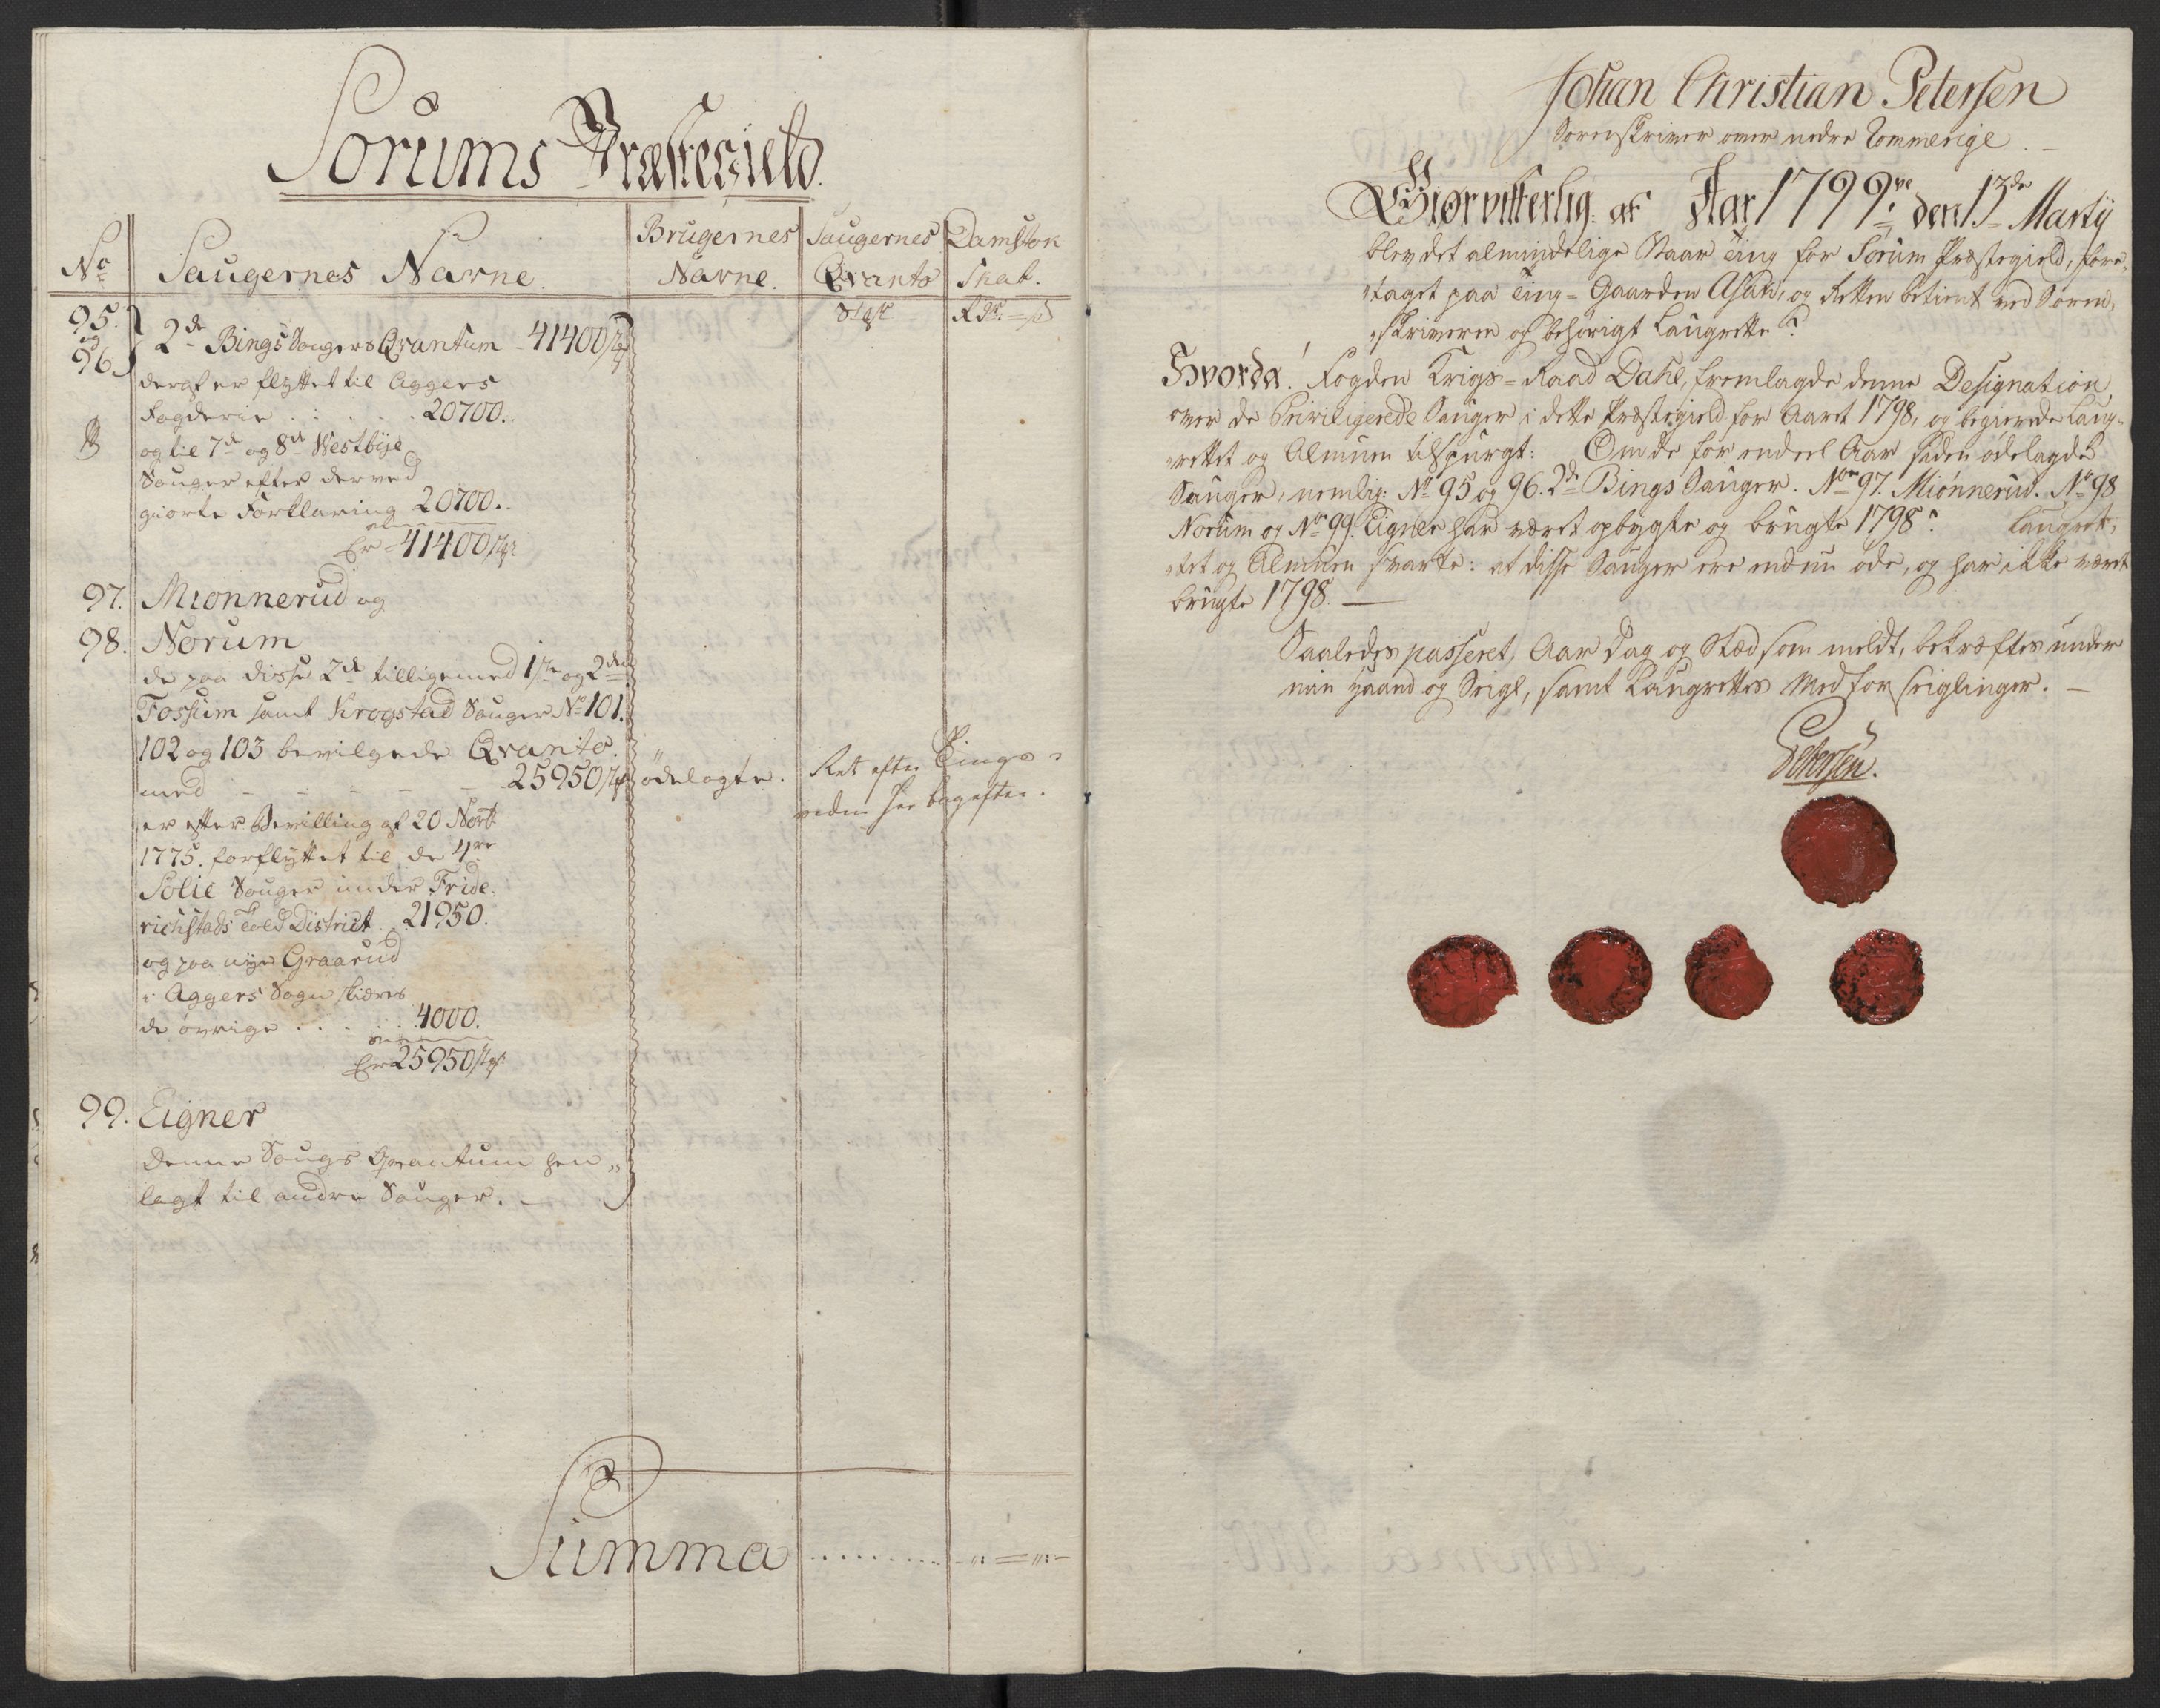 Sørums Præstegield.
No
Saugernes Navne.
Brugernes
Navne.
Saugernes
Qvanto
Damstok
Skat.
95.
og
96
2de Bings Saugers Qvantum - 41400
deraf er flyttet til Aggers
Fogderie . . . . . 20700..
og til 7de og 8de Westbye
Sauger efter derved
giorte Forklaring 20700..
Er 41400
97. Miønnerud og
98. Norum
de paa disse 2de tilligemed 1ste og 2den
Fossum samt Krogstad Sauger No 101.
102 og 103 bevilgede Qvanto.
med - - - - - 25950
er efter Bevilling af 20 Novb
1775. forflyttet til de 4re
Solie Sauger under Fride-
richstads Told District . 21950.
og paa nye Graarud
i Aggers Sogn skiæres
de øvrige . . . . . 4000.
Er 25950
99. Eigner
denne Saugs Qvantum hen„
lagt til andre Sauger. -
ødelagte.
Rett efter Tings-
viden her bagefter.
Summa
Johan Christian Petersen
Sorenskriver over nedre Rommerige. -
Giør vitterlig: at Aar 1799. den 13de Martij
blev det almindelige Vaar Ting for Sørum Præstegield, fore-
taget paa Ting-Gaarden Asak, og Retten betient ved Soren-
skriveren og behørigt Laugrette.
Hvorda! Fogden Krigs-Raad Dahl, fremlagde denne Designation
over de Priviligerede Sauger i dette Præstegield for Aaret 1798, og begierede Laug-
rettet og Almuen tilspurgt: Om de for endeel Aar siden ødelagde
Sauger, nemlig: No 95 og 96. 2de Bings Sauger. No 97. Miønnerud. No 98
Norum og No 99. Eigner har været opbygte og brugte 1798? Laugret-
tet og Almuen svarte: at disse Sauger ere endnu øde, og har ikke været
brugte 1798. -
Saaledes passeret, Aar Dag og Stæd som meldt, bekræftes under
min Haand og Seigl, samt Laugrettes Medforseiglinger. -
Petersen.